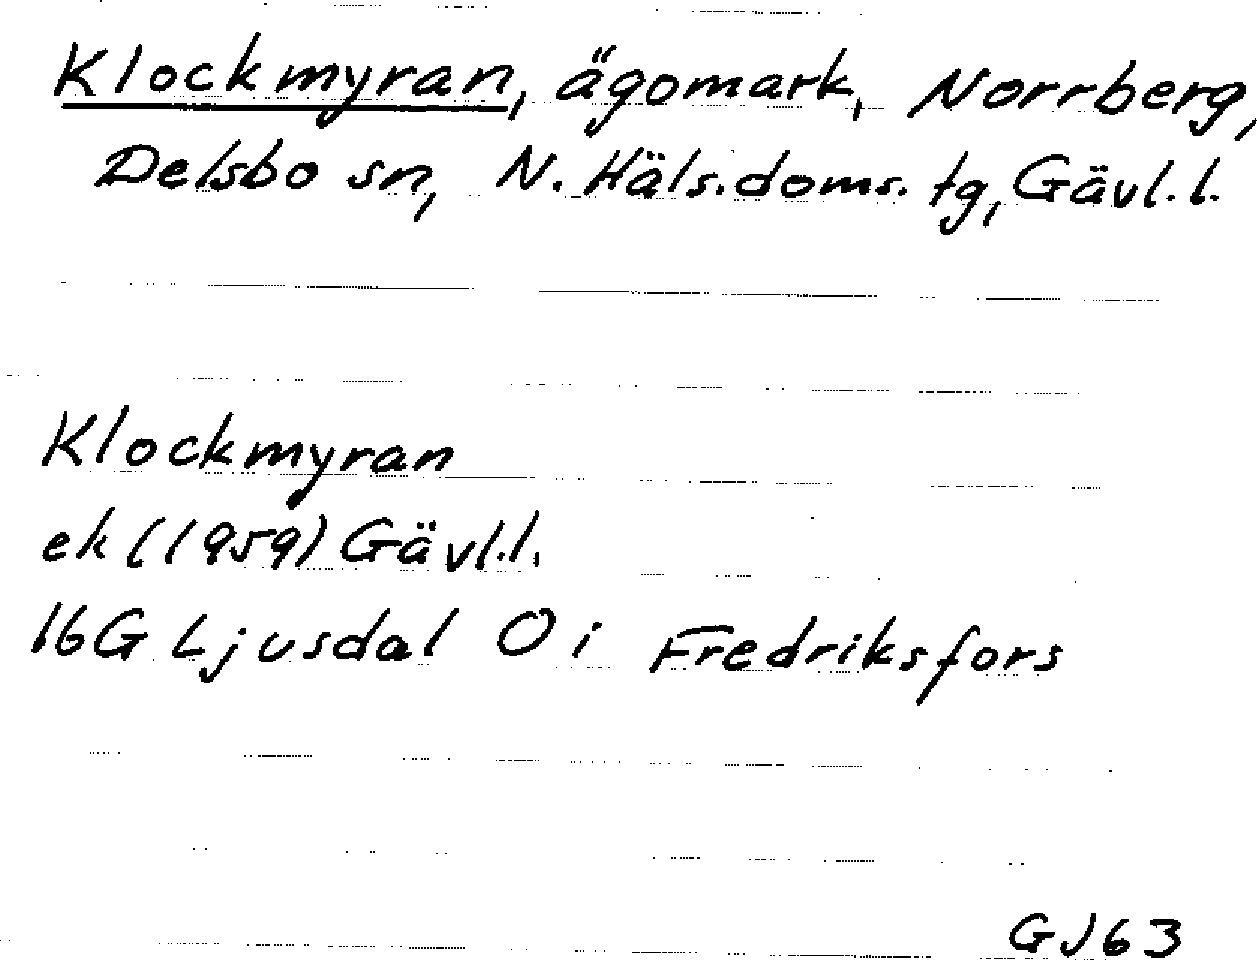 Klockmyran, ägomark, Norrberg,
Delsbo sn, N. Häls. doms. tg, Gävl. l.
Klockmyran
ek (1959) Gävl. l.
16G Ljusdal O i Fredriksfors
GJ63